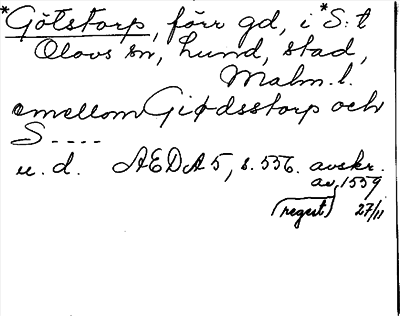 *Götstorp, förr gd, i *S:t
Olovs sn, hund, stad,
Malm. l.
emellom Giødsstorp och
S----
u. d. AEDA 5, s. 556. avskr.
av 1559
(regest) 27/11